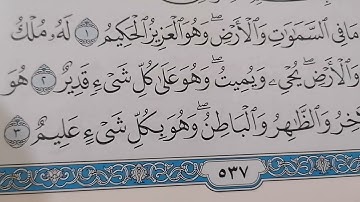 مَا فِى السَّمَٰوَٰتِ وَالْأَرْضِ ۖ وَهُوَ الْعَزِيزُ الْحَكِيمُ ١ لَهُۥ مُلْكُ
وَالْأَرْضِ ۖ يُحْىِۦ وَيُمِيتُ ۖ وَهُوَ عَلَىٰ كُلِّ شَىْءٍ قَدِيرٌ ٢ هُوَ
وَالظَّٰهِرُ وَالْبَاطِنُ ۖ وَهُوَ بِكُلِّ شَىْءٍ عَلِيمٌ ٣
٥٣٧